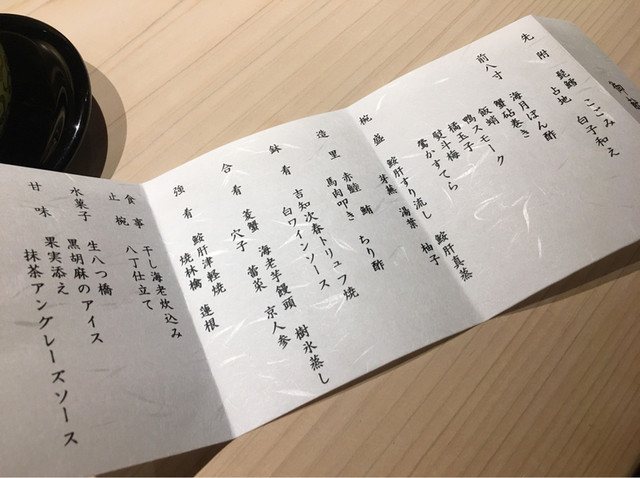 先附 髭鱈 こごみ
占地 白子和え
前八寸
海月ぽん酢
蟹砧巻き
飯蛸
鴨スモーク
橘玉子
熨斗梅
鶯かすてら
椀盛 鮟肝すり流し 鮟肝真蒸
湯葉 柚子
造里 赤鯥 鮪 ちり酢
馬肉叩き
鉢肴 吉知次春トリュフ焼
白ワインソース
合肴 菱蟹 海老芋饅頭 樹氷蒸し
穴子 蕾菜 京人参
強肴 鮟肝津軽焼
焼林檎 蓮根
食事 干し海老炊込み
止椀 八丁仕立て
水菓子 生八つ橋
黒胡麻のアイス
甘味 果実添え
抹茶アングレーズソース